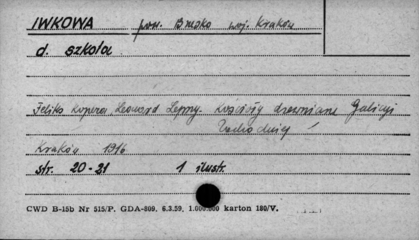 IWKOWA pow. Brzesko woj. Kraków
d. szkoła
Feliks Kopera, Leonard Lepszy. Kościoły drewniane Galicyi
Zachodniej
Kraków 1916
str. 20-21 1 ilustr.
CWD B-15b Nr 515/P. GDA-809. 6.3.59. 1.000.000 karton 180/V.